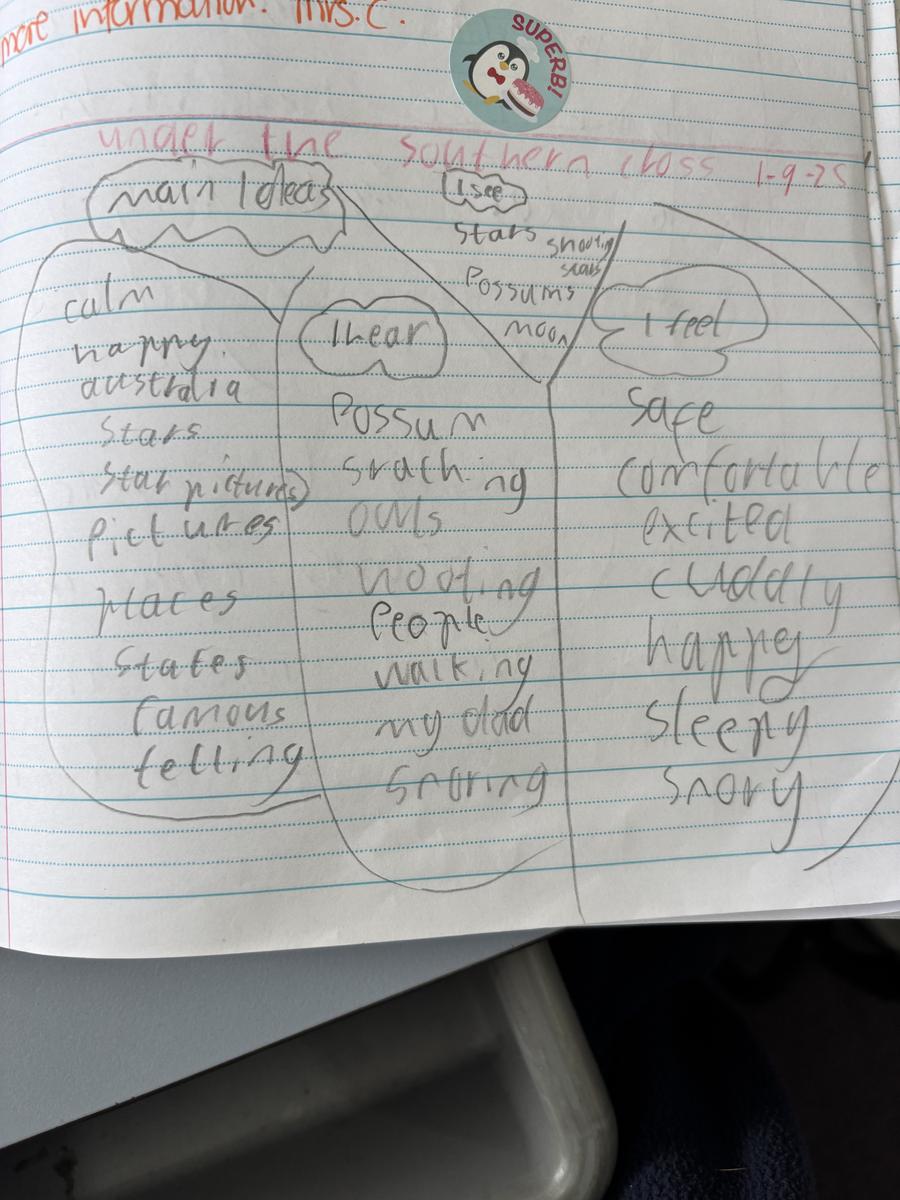 more information. Mrs. C.
SUPERB!
under the southern cross 1-9-25
main Ideas
calm
happy.
australia
stars
star pictures
pictures
places
states
famous
telling
I see
stars shooting
stars
Possums
moon
I hear
Possum
srach ing
owls
hooting
People
walking
my dad
snoring
I feel
safe
comfortable
excited
cuddly
happy
sleepy
snory